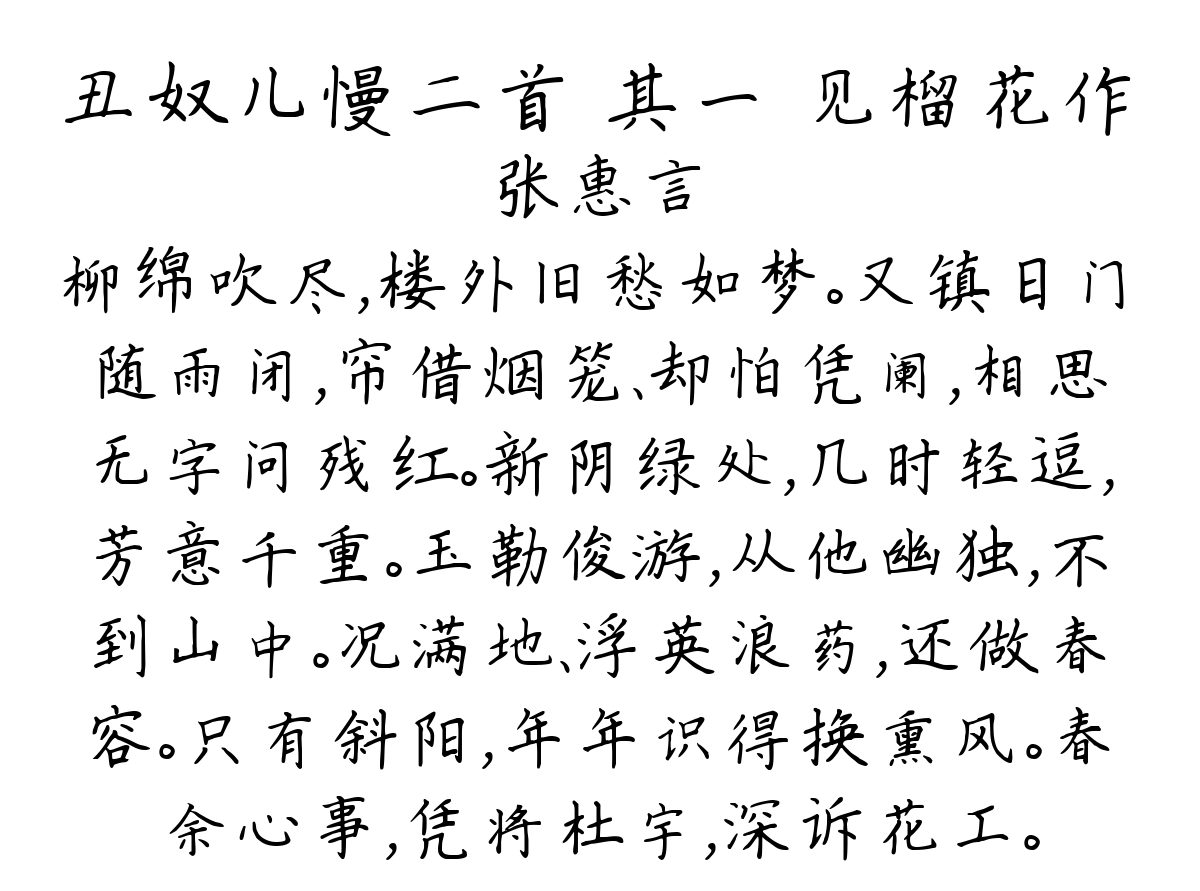 丑奴儿慢二首 其一 见榴花作
张惠言
柳绵吹尽,楼外旧愁如梦。又镇日门
随雨闭,帘借烟笼、却怕凭阑,相思
无字问残红。新阴绿处,几时轻逗,
芳意千重。玉勒俊游,从他幽独,不
到山中。况满地、浮英浪药,还做春
容。只有斜阳,年年识得换熏风。春
余心事,凭将杜宇,深诉花工。